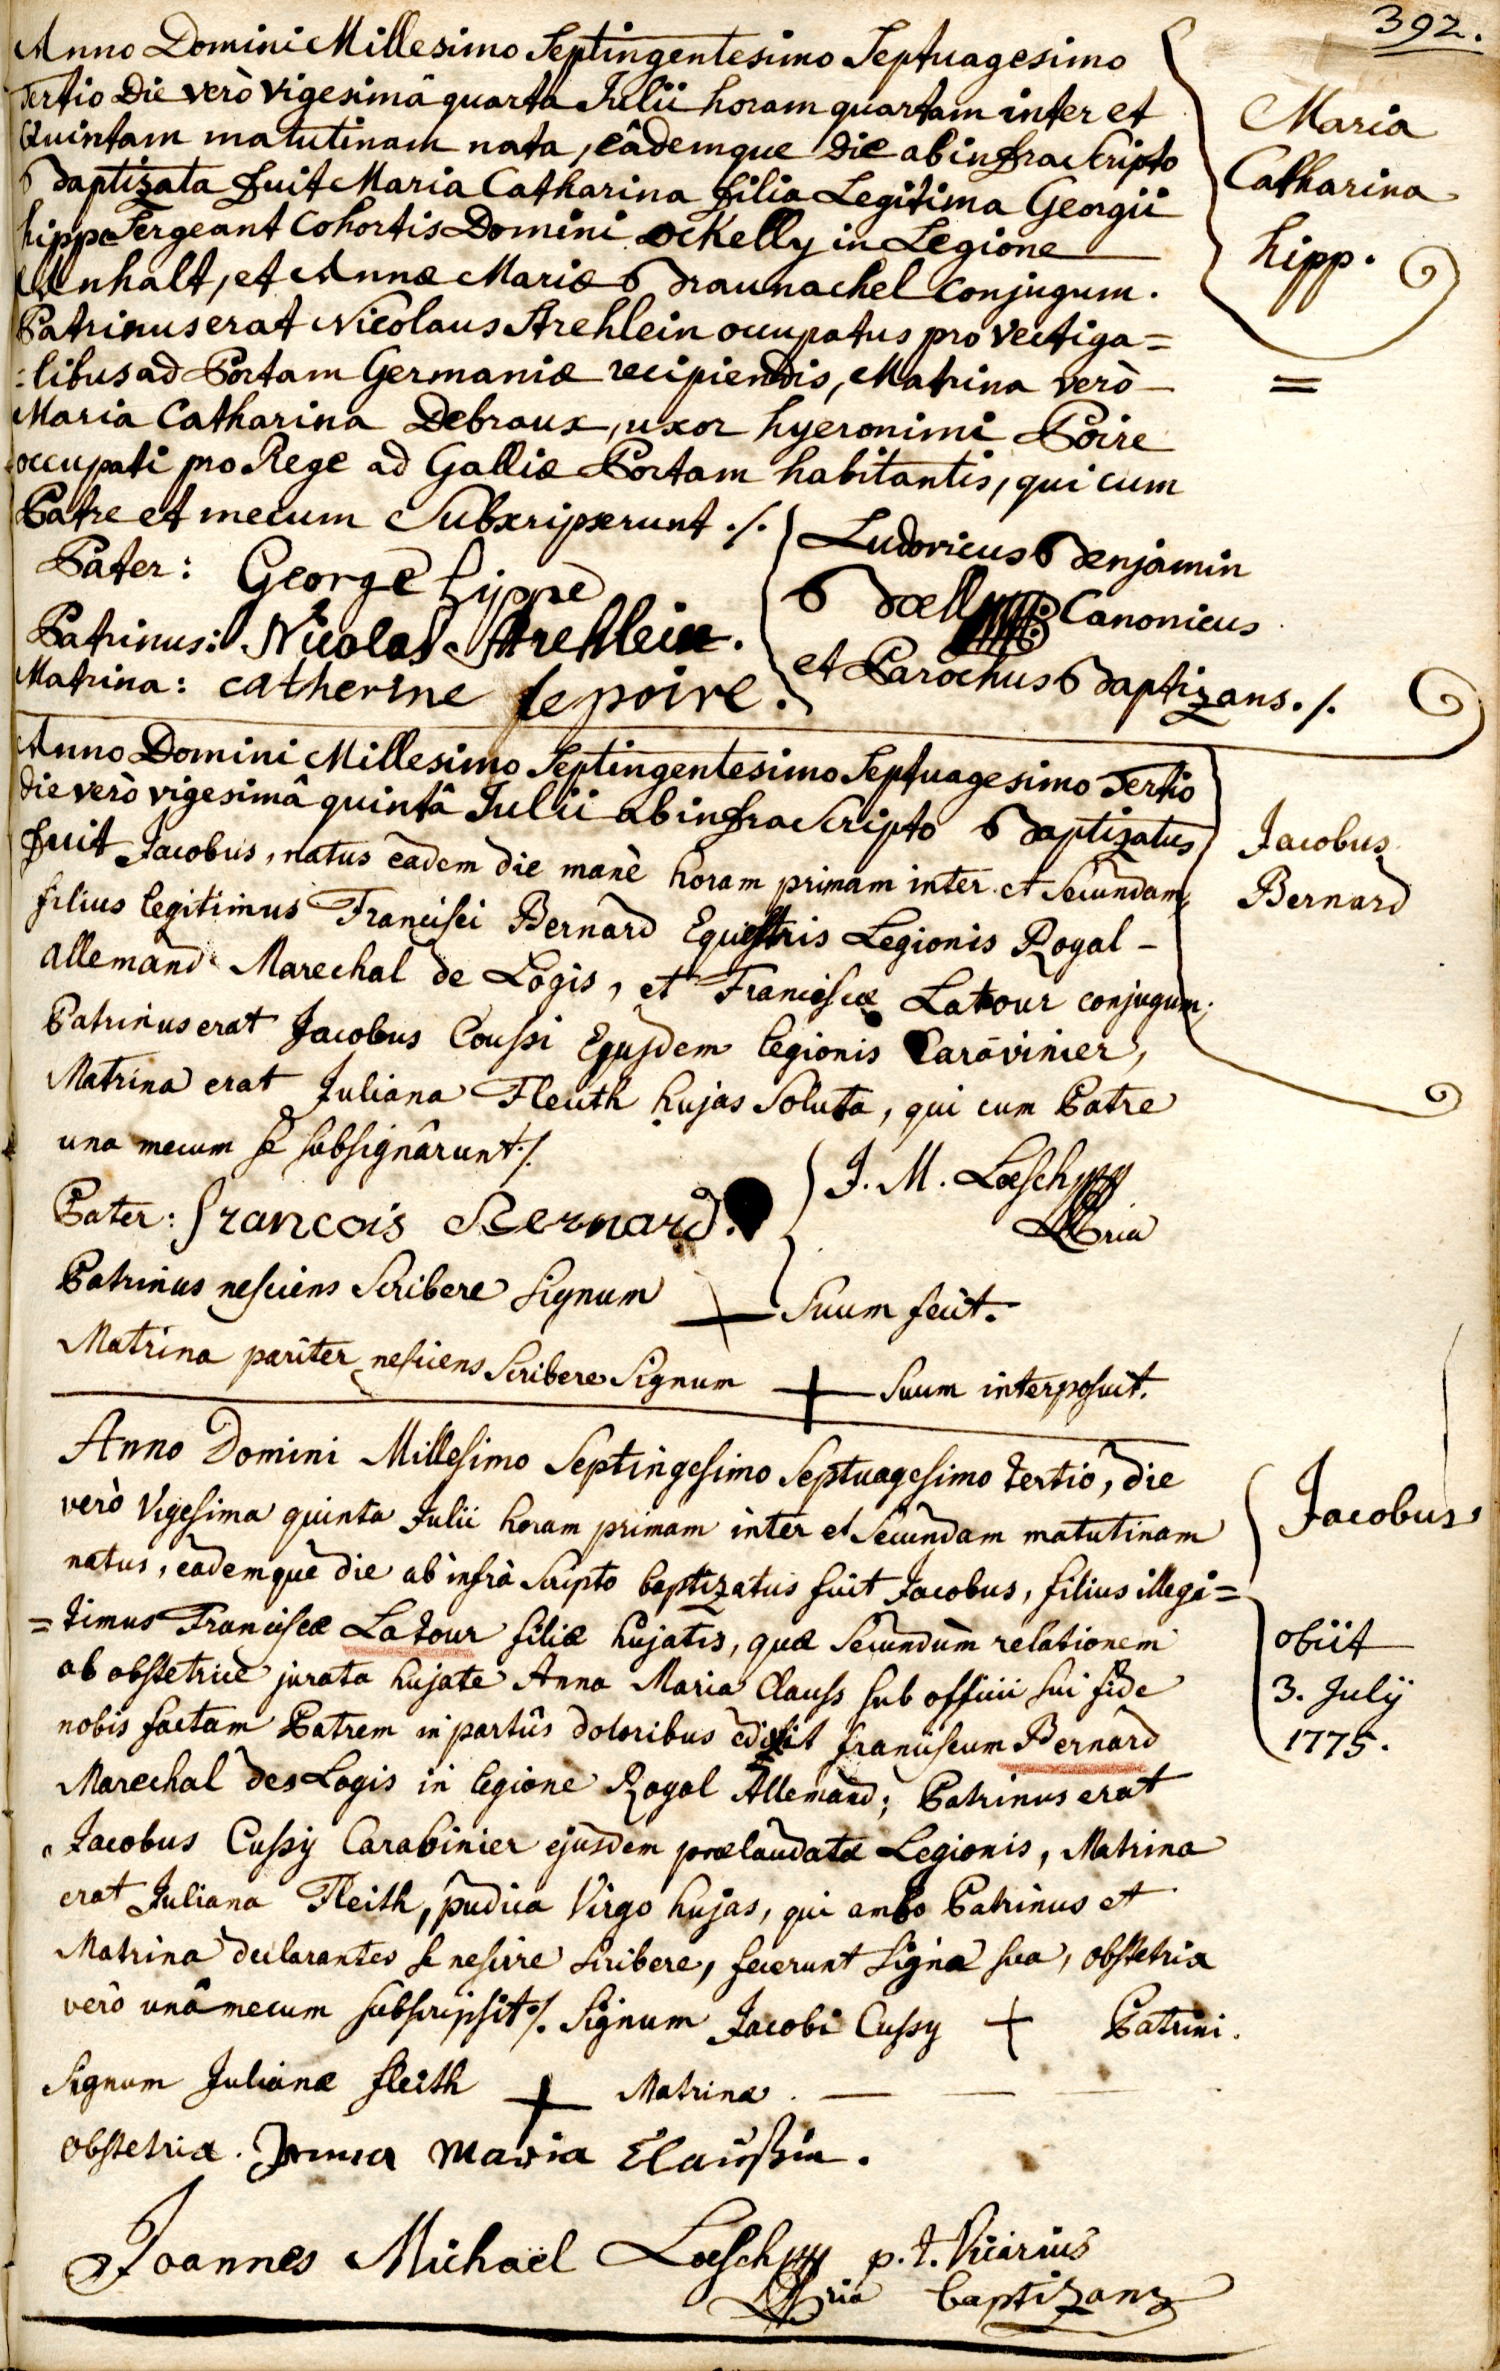 392.
Anno Domini Millesimo Septingentesimo Septuagesimo
Tertio Die verò vigesimâ quarta Julii horam quartam inter et
Quintam matutinam nata, eâdemque Die ab infra Scripto
baptizata fuit Maria Catharina filia Legitima Georgii
hippe Sergeant Cohortis Domini ockelly in Legione
Anhalt, et Annæ Mariæ braunachel conjugum.
Patrinus erat Nicolaus Strehlein occupatus pro vectiga=
=libus ad Portam Germaniæ recipiendis, Matrina verò
Maria Catharina Debraux, uxor hyeronimi Poire
occupati pro Rege ad Galliæ Portam habitantis, qui cum
Patre et mecum Subscripserunt ./.
Maria
Catharina
hipp.
=
Pater: George hippe
Patrinus: Nicolas Strehlein.
Matrina: catherine lepoire.
Ludovicus benjamin
boell Canonicus
et Parochus baptizans ./.
Anno Domini Millesimo Septingentesimo Septuagesimo Tertio
die verò vigesimâ quintâ Julii ab infra Scripto baptizatus
fuit Jacobus, natus eadem die manè horam primam inter et Secundam,
filius legitimus Francisci Bernard Equestris Legionis Royal-
allemand Marechal de Logis, et Franciscæ Latour conjugum;
Patrinus erat Jacobus Coussi Ejusdem legionis Caravinier,
Matrina erat Juliana Fleuth hujas Soluta, qui cum Patre
una mecum se subsignârunt ./.
Jacobus
Bernard
Pater: francois Bernard.
J. M. Loesch
Patrinus nesciens Scribere Signum + Suum fecit.
Matrina pariter nesciens Scribere Signum + Suum interposuit.
Anno Domini Millesimo Septingesimo Septuagesimo tertio, die
verò Vigesima quinta Julii horam primam inter et Secundam matutinam
natus, eademque die ab infrà Scripto baptizatus fuit Jacobus, filius illegi=
=timus Franciscæ Latour filiæ hujatis, quæ Secundùm relationem
ab obstetrice jurata hujate Anna Maria Clauss sub officii sui fide
nobis factam Patrem in partûs doloribus edixit franciscum Bernard
Marechal des Logis in legione Royal Allemand; Patrinus erat
Jacobus Cussy Carabinier ejusdem prælaudatæ Legionis, Matrina
erat Juliana Fleith, pudica Virgo hujas, qui ambo Patrinus et
Matrina declarantes se nescire scribere, fecerunt Signa sua, obstetrix
verò unâ mecum subscripsit ./. Signum Jacobi Cussy + Patrini.
Signum Julianæ fleith + Matrinæ.
Jacobus
obiit
3. July
1775.
obstetrix. Anna Maria Claussin.
Joannes Michaël Loesch p. t. Vicarius
baptizans